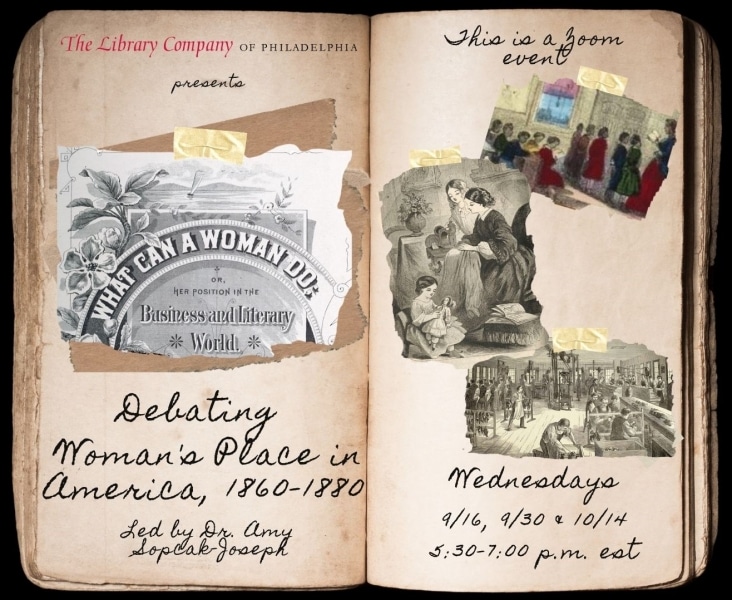 The Library Company OF PHILADELPHIA
presents
WHAT CAN A WOMAN DO;
OR,
HER POSITION IN THE
Business and Literary
World.
Debating
Woman's Place in
America, 1860-1880
Led by Dr. Amy
Sopcak-Joseph
This is a Zoom
event
Wednesdays
9/16, 9/30 & 10/14
5:30-7:00 p.m. est